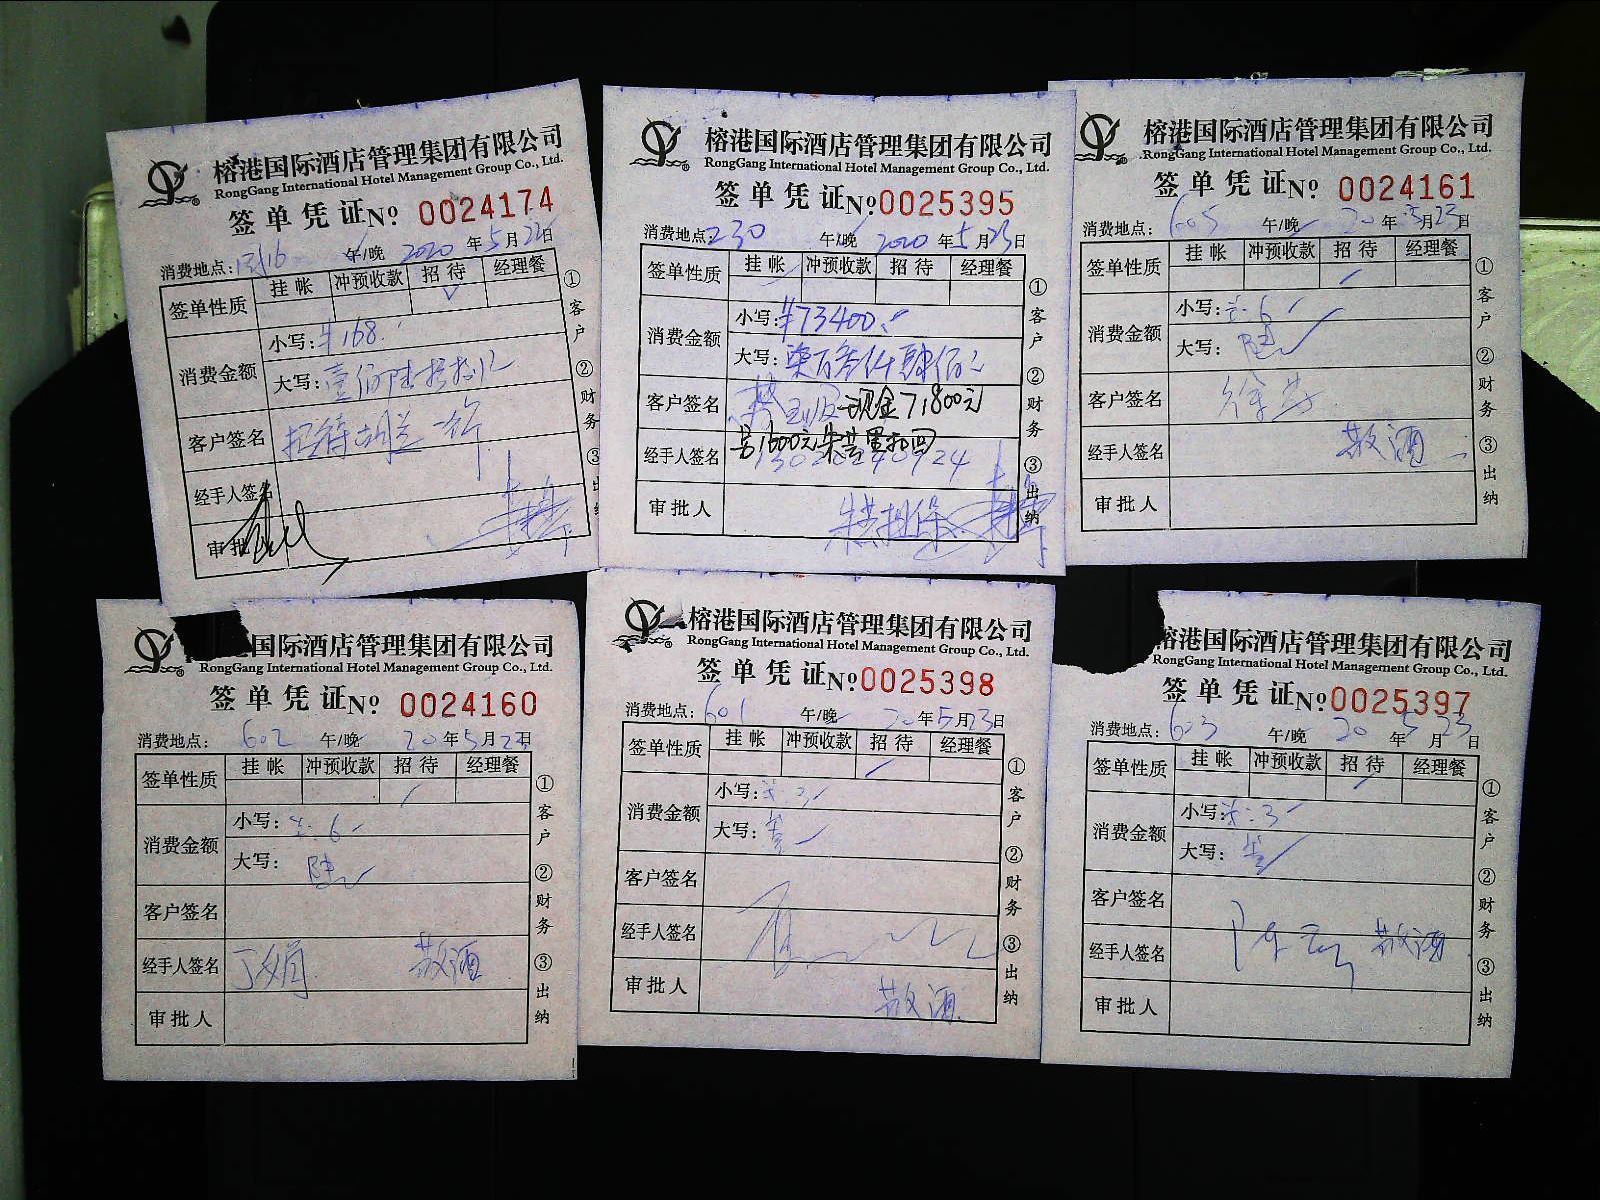 榕港国际酒店管理集团有限公司
RongGang International Hotel Management Group Co., Ltd.
签单凭证 No 0024174
消费地点: 午/晚 2020年5月22日
签单性质 挂帐 冲预收款 招待 经理餐
✓
消费金额 小写: ¥168.
大写: 壹佰陆拾捌元
客户签名 招待胡总一行
经手人签名
审批人
① 客户 ② 财务 ③ 出纳
榕港国际酒店管理集团有限公司
RongGang International Hotel Management Group Co., Ltd.
签单凭证 No 0025395
消费地点: 230 午/晚 2020年5月23日
签单性质 挂帐 冲预收款 招待 经理餐
消费金额 小写: ¥73400.
大写:
客户签名 现金71800元
另1600元朱芸 扣回
经手人签名 13020240924
审批人 朱芸担保
① 客户 ② 财务 ③ 出纳
榕港国际酒店管理集团有限公司
RongGang International Hotel Management Group Co., Ltd.
签单凭证 No 0024161
消费地点: 605 午/晚 20年5月23日
签单性质 挂帐 冲预收款 招待 经理餐
消费金额 小写: 6
大写: 陆
客户签名
经手人签名 敬酒
审批人
① 客户 ② 财务 ③ 出纳
国际酒店管理集团有限公司
RongGang International Hotel Management Group Co., Ltd.
签单凭证 No 0024160
消费地点: 602 午/晚 20年5月23日
签单性质 挂帐 冲预收款 招待 经理餐
消费金额 小写: 6
大写: 陆
客户签名
经手人签名 丁娟 敬酒
审批人
① 客户 ② 财务 ③ 出纳
榕港国际酒店管理集团有限公司
RongGang International Hotel Management Group Co., Ltd.
签单凭证 No 0025398
消费地点: 601 午/晚 20年5月23日
签单性质 挂帐 冲预收款 招待 经理餐
消费金额 小写: 3
大写: 叁
客户签名
经手人签名
审批人 敬酒
① 客户 ② 财务 ③ 出纳
榕港国际酒店管理集团有限公司
RongGang International Hotel Management Group Co., Ltd.
签单凭证 No 0025397
消费地点: 603 午/晚 20年5月23日
签单性质 挂帐 冲预收款 招待 经理餐
消费金额 小写: 3
大写: 叁
客户签名
经手人签名 敬酒
审批人
① 客户 ② 财务 ③ 出纳